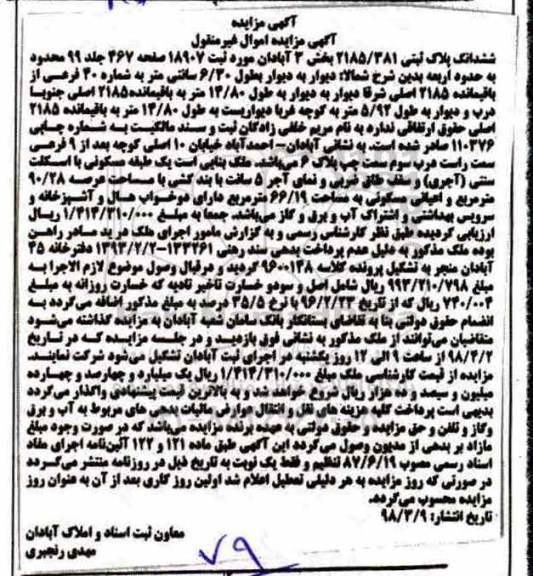 آگهی مزایده
آگهی مزایده اموال غیرمنقول
ششدانگ پلاک ثبتی ۲۱۸۵/۳۸۱ بخش ۳ آبادان مورد ثبت ۱۸۹۰۷ صفحه ۴۶۷ جلد ۹۹ محدود
به حدود اربعه بدین شرح شمالا: دیوار به دیوار بطول ۶/۳۰ سانتی متر به شماره ۳۰ فرعی از
باقیمانده ۲۱۸۵ اصلی شرقا دیوار به دیوار به طول ۱۴/۸۰ متر به باقیمانده ۲۱۸۵ اصلی جنوبا
درب و دیوار به طول ۵/۹۲ متر به کوچه غربا دیواریست به طول ۱۴/۸۰ متر به باقیمانده ۲۱۸۵
اصلی حقوق ارتفاقی ندارد به نام مریم خلفی زادگان ثبت و سند مالکیت به شماره چاپی
۱۱۰۳۷۶ صادر شده است. به نشانی آبادان– احمدآباد خیابان ۱۰ اصلی کوچه بعد از ۹ فرعی
سمت راست درب سوم سمت چپ پلاک ۶ میباشد. ملک بنایی است یک طبقه مسکونی با اسکلت
سنتی (آجری) و سقف طاق ضربی و نمای آجر ۵ سانت با بند کشی با مساحت عرصه ۹۰/۲۸
مترمربع و اعیانی مسکونی به مساحت ۶۶/۱۹ مترمربع دارای دوخواب هال و آشپزخانه و
سرویس بهداشتی و اشتراک آب و برق و گاز می‌باشد. جمعا به مبلغ ۱/۴۱۴/۳۱۰/۰۰۰ ریال
ارزیابی گردیده طبق نظر کارشناس رسمی و به گزارش مامور اجرای ملک در ید مادر راهن
بوده ملک مذکور به دلیل عدم پرداخت بدهی سند رهنی ۱۳۳۲۶۱–۱۳۹۳/۲/۲ دفترخانه ۴۵
آبادان منجر به تشکیل پرونده کلاسه ۹۶۰۰۱۴۸ گردید و درقبال وصول موضوع لازم الاجرا به
مبلغ ۹۹۳/۲۱۰/۷۹۸ ریال شامل اصل و سودو خسارت تاخیر تادیه که خسارت روزانه به مبلغ
۷۴۰/۰۰۴ ریال که از تاریخ ۹۶/۲/۲۳ با نرخ ۳۵/۵ درصد به مبلغ مذکور اضافه می‌گردد به
انضمام حقوق دولتی بنا به تقاضای بستانکار بانک سامان شعبه آبادان به مزایده گذاشته می‌شود
متقاضیان می‌توانند از ملک مذکور به نشانی فوق بازدید و در جلسه مزایده که در تاریخ
۹۸/۴/۲ از ساعت ۹ الی ۱۲ روز یکشنبه در اجرای ثبت آبادان تشکیل می‌شود شرکت نمایند.
مزایده از قیمت کارشناسی ملک مبلغ ۱/۴۱۴/۳۱۰/۰۰۰ ریال یک میلیارد و چهارصد و چهارده
میلیون و سیصد و ده هزار ریال شروع خواهد شد و به بالاترین قیمت پیشنهادی واگذار می‌گردد
بدیهی است پرداخت کلیه هزینه های نقل و انتقال عوارض مالیات بدهی های مربوط به آب و برق
وگاز و تلفن و حق مزایده و حقوق دولتی به عهده برنده مزایده می‌باشد که در صورت وجود مبلغ
مازاد بر بدهی از مدیون وصول می‌گردد این آگهی طبق ماده ۱۲۱ و ۱۲۲ آئین‌نامه اجرای مفاد
اسناد رسمی مصوب ۸۷/۶/۱۹ تنظیم و فقط یک نوبت به تاریخ ذیل در روزنامه منتشر می‌گردد
در صورتی که روز مزایده به هر دلیلی تعطیل اعلام شد اولین روز کاری بعد از آن به عنوان روز
مزایده محسوب می‌گردد.
تاریخ انتشار: ۹۸/۳/۹
معاون ثبت اسناد و املاک آبادان
مهدی رنجبری
۷۹